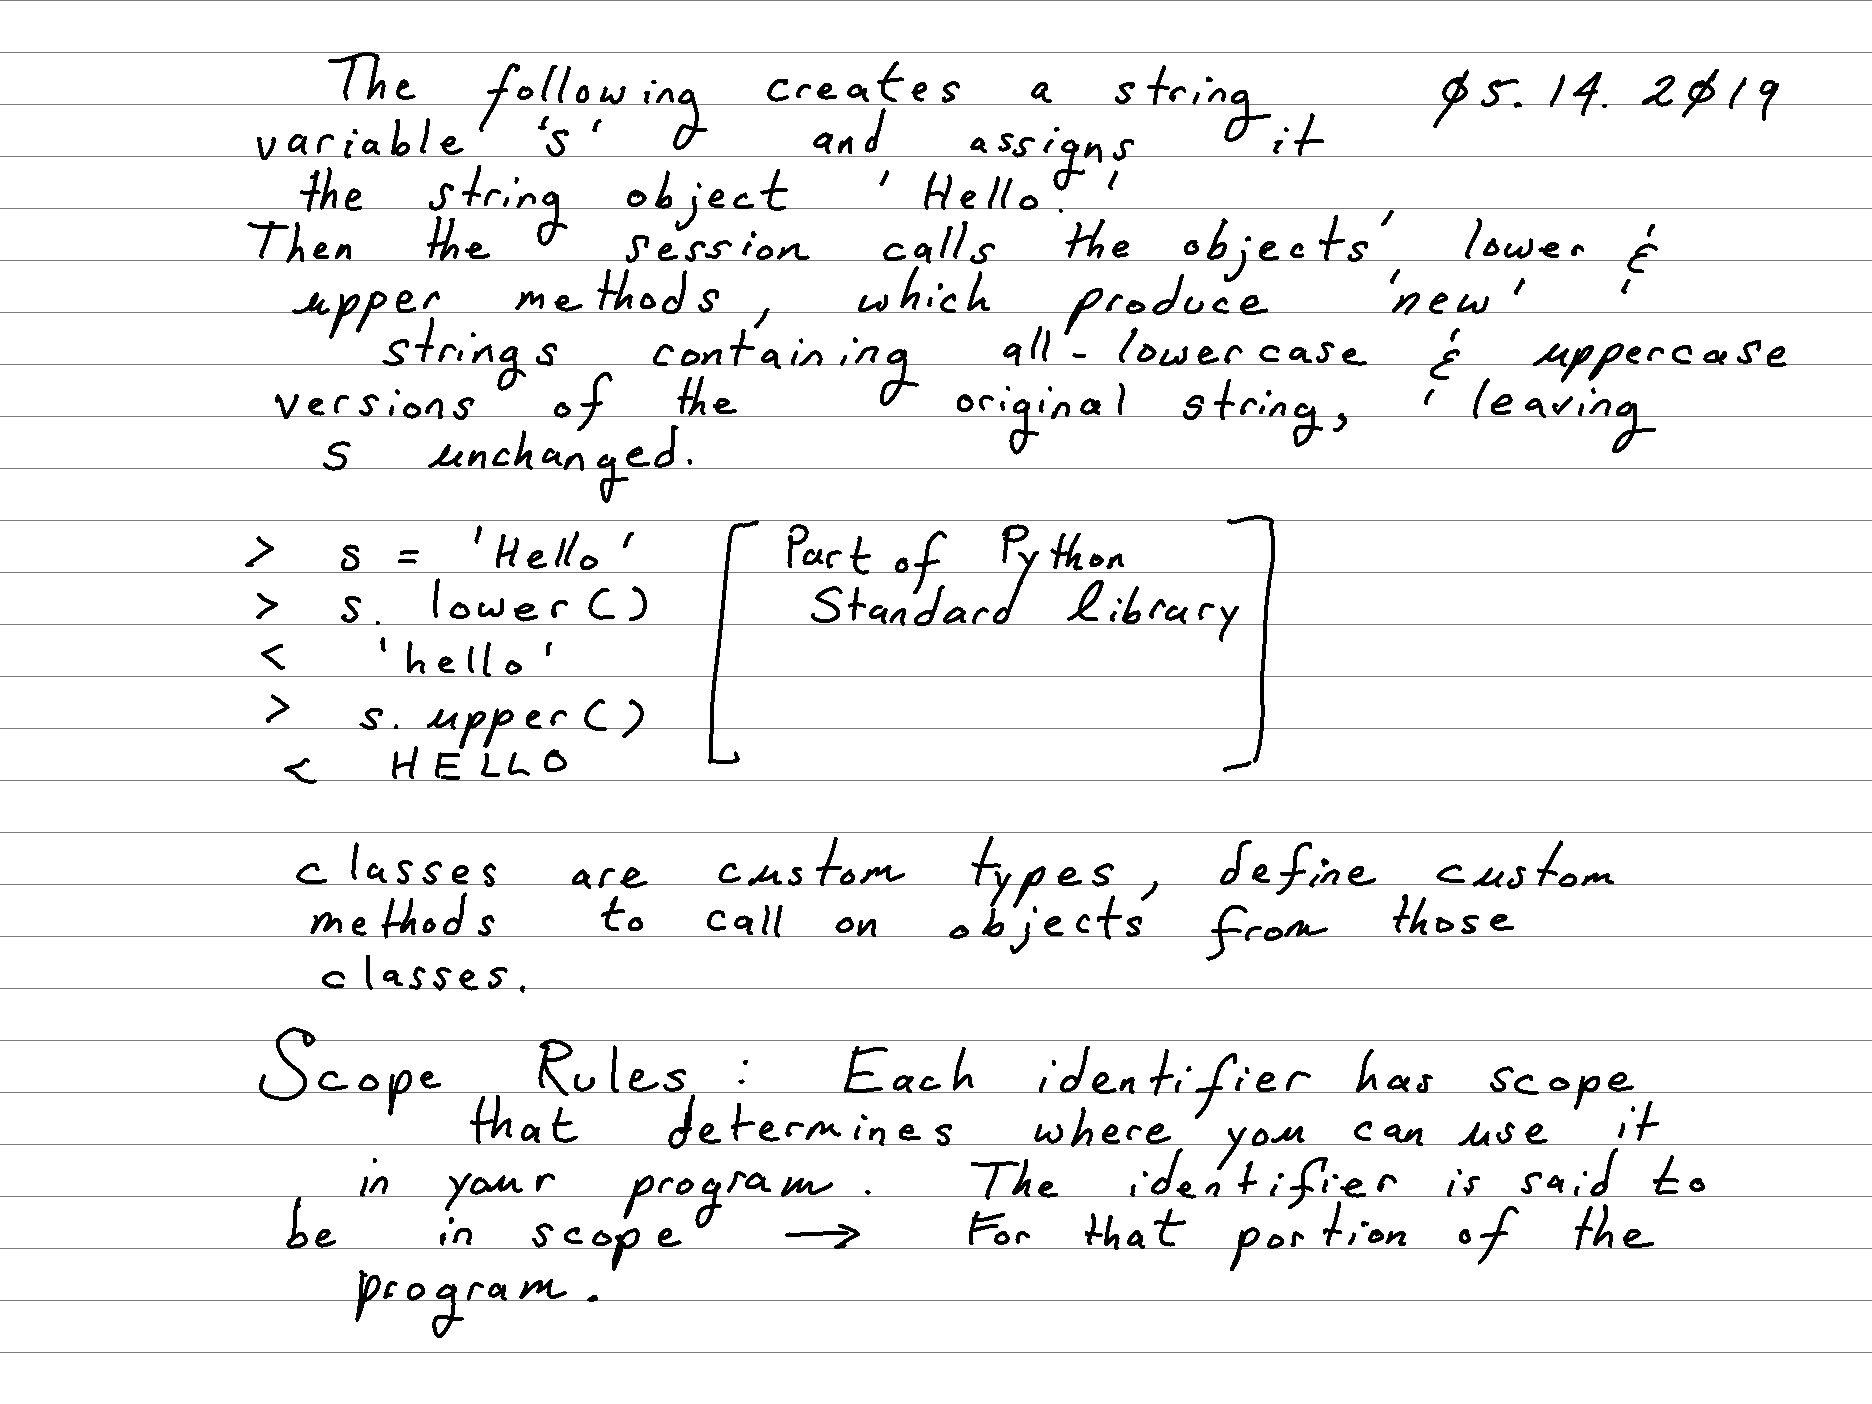 The following creates a string ø5.14.2ø19
variable 's' and assigns it
the string object 'Hello.'
Then the session calls the objects' lower &
upper methods, which produce 'new'
strings containing all-lowercase & uppercase
versions of the original string, leaving
s unchanged.
> s = 'Hello' [Part of Python
> s. lower() Standard library]
< 'hello'
> s. upper()
< HELLO
classes are custom types, define custom
methods to call on objects from those
classes.
Scope Rules : Each identifier has scope
that determines where you can use it
in your program. The identifier is said to
be in scope → For that portion of the
program.